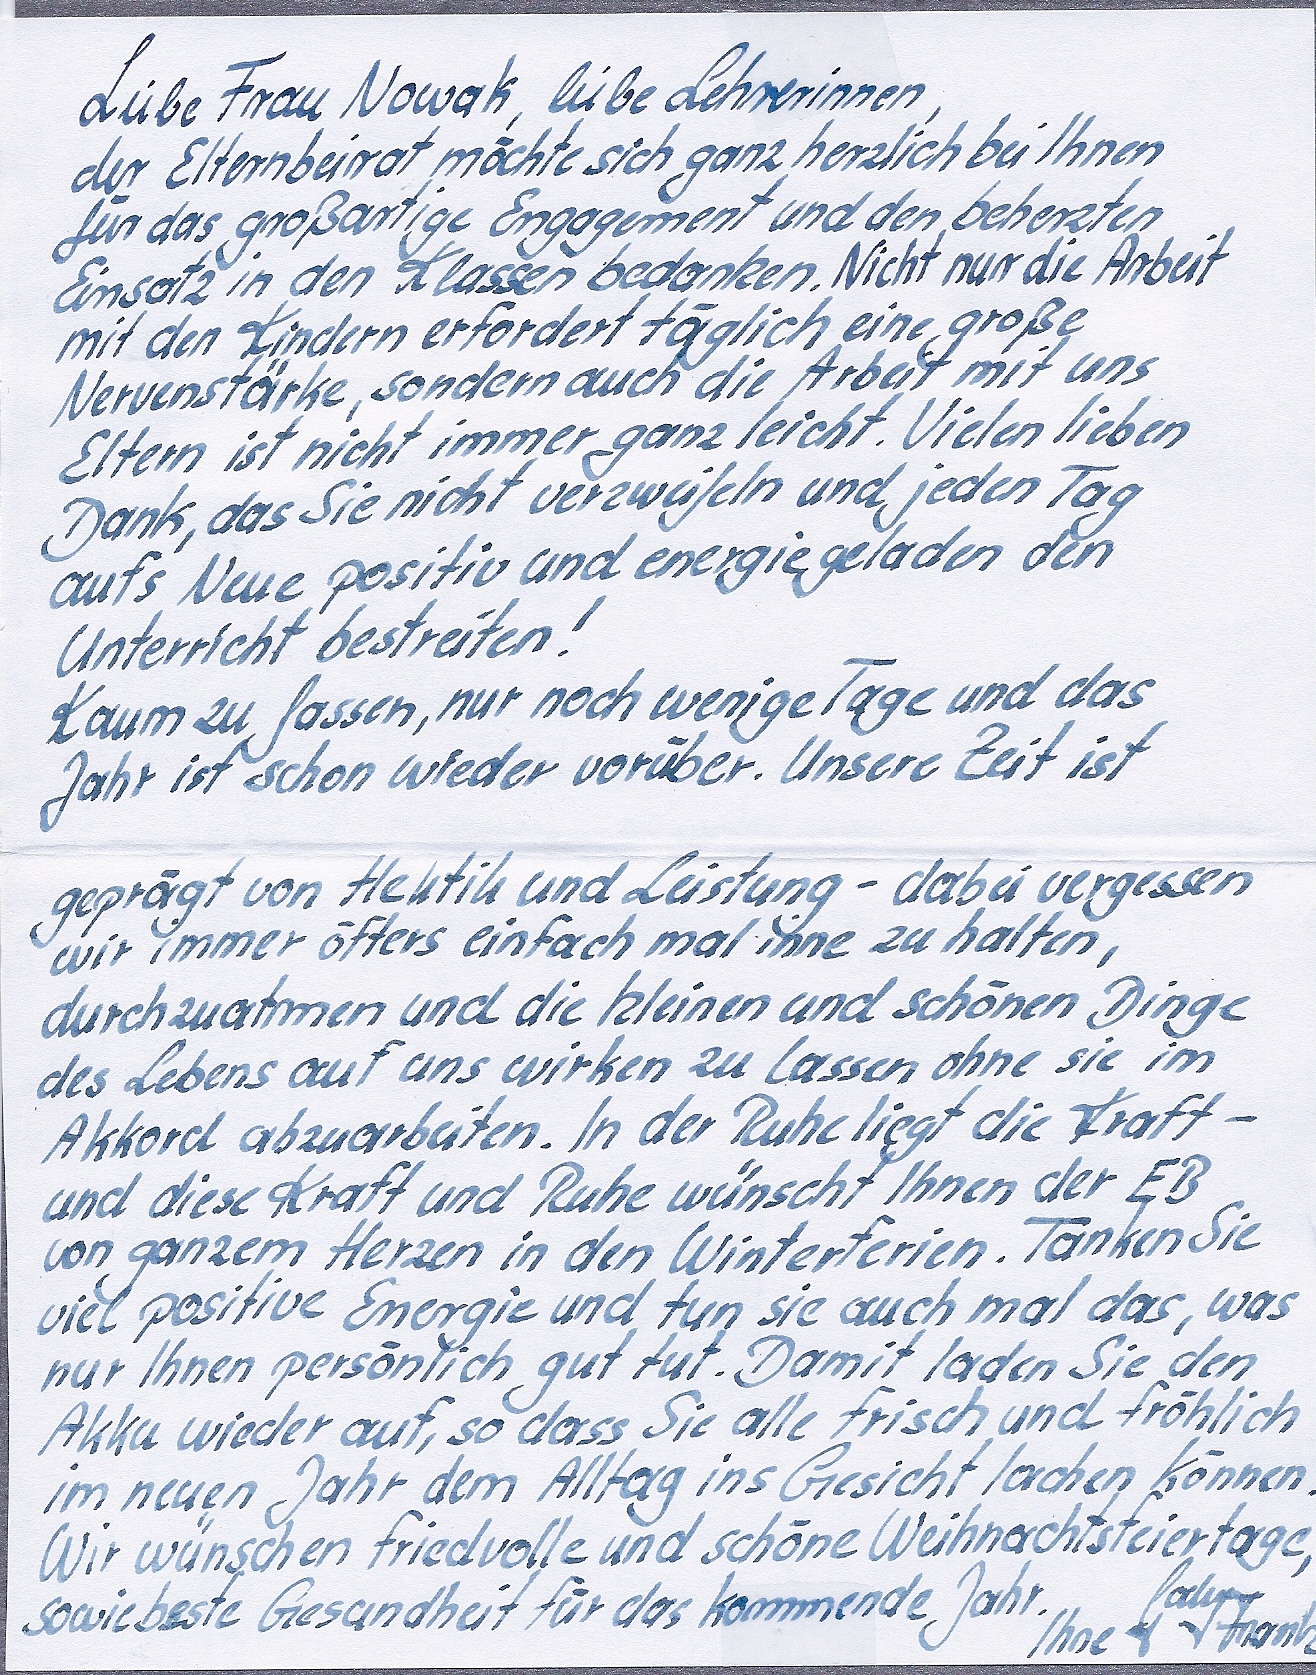 Liebe Frau Nowak, liebe Lehrerinnen,
der Elternbeirat möchte sich ganz herzlich bei Ihnen
für das großartige Engagement und den beherzten
Einsatz in den Klassen bedanken. Nicht nur die Arbeit
mit den Kindern erfordert täglich eine große
Nervenstärke, sondern auch die Arbeit mit uns
Eltern ist nicht immer ganz leicht. Vielen lieben
Dank, das Sie nicht verzweifeln und jeden Tag
aufs Neue positiv und energiegeladen den
Unterricht bestreiten!
Kaum zu fassen, nur noch wenige Tage und das
Jahr ist schon wieder vorüber. Unsere Zeit ist
geprägt von Hektik und Leistung - dabei vergessen
wir immer öfters einfach mal inne zu halten,
durchzuatmen und die kleinen und schönen Dinge
des Lebens auf uns wirken zu lassen ohne sie im
Akkord abzuarbeiten. In der Ruhe liegt die Kraft -
und diese Kraft und Ruhe wünscht Ihnen der EB
von ganzem Herzen in den Winterferien. Tanken Sie
viel positive Energie und tun sie auch mal das, was
nur Ihnen persönlich gut tut. Damit laden Sie den
Akku wieder auf, so dass Sie alle frisch und fröhlich
im neuen Jahr dem Alltag ins Gesicht lachen können.
Wir wünschen friedvolle und schöne Weihnachtsfeiertage,
sowie beste Gesundheit für das kommende Jahr.
Ihne